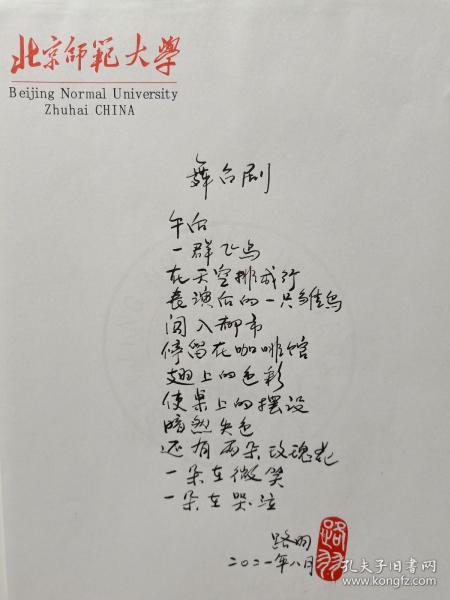 北京师范大学
Beijing Normal University
Zhuhai CHINA
舞台剧
午后
一群飞鸟
在天空排成行
表演后的一只雏鸟
闯入都市
停留在咖啡馆
翅上的色彩
使桌上的摆设
暗然失色
还有两朵玫瑰花
一朵在微笑
一朵在哭泣
路羽
二〇二一年八月
路羽
孔夫子旧书网
www.kongfz.com